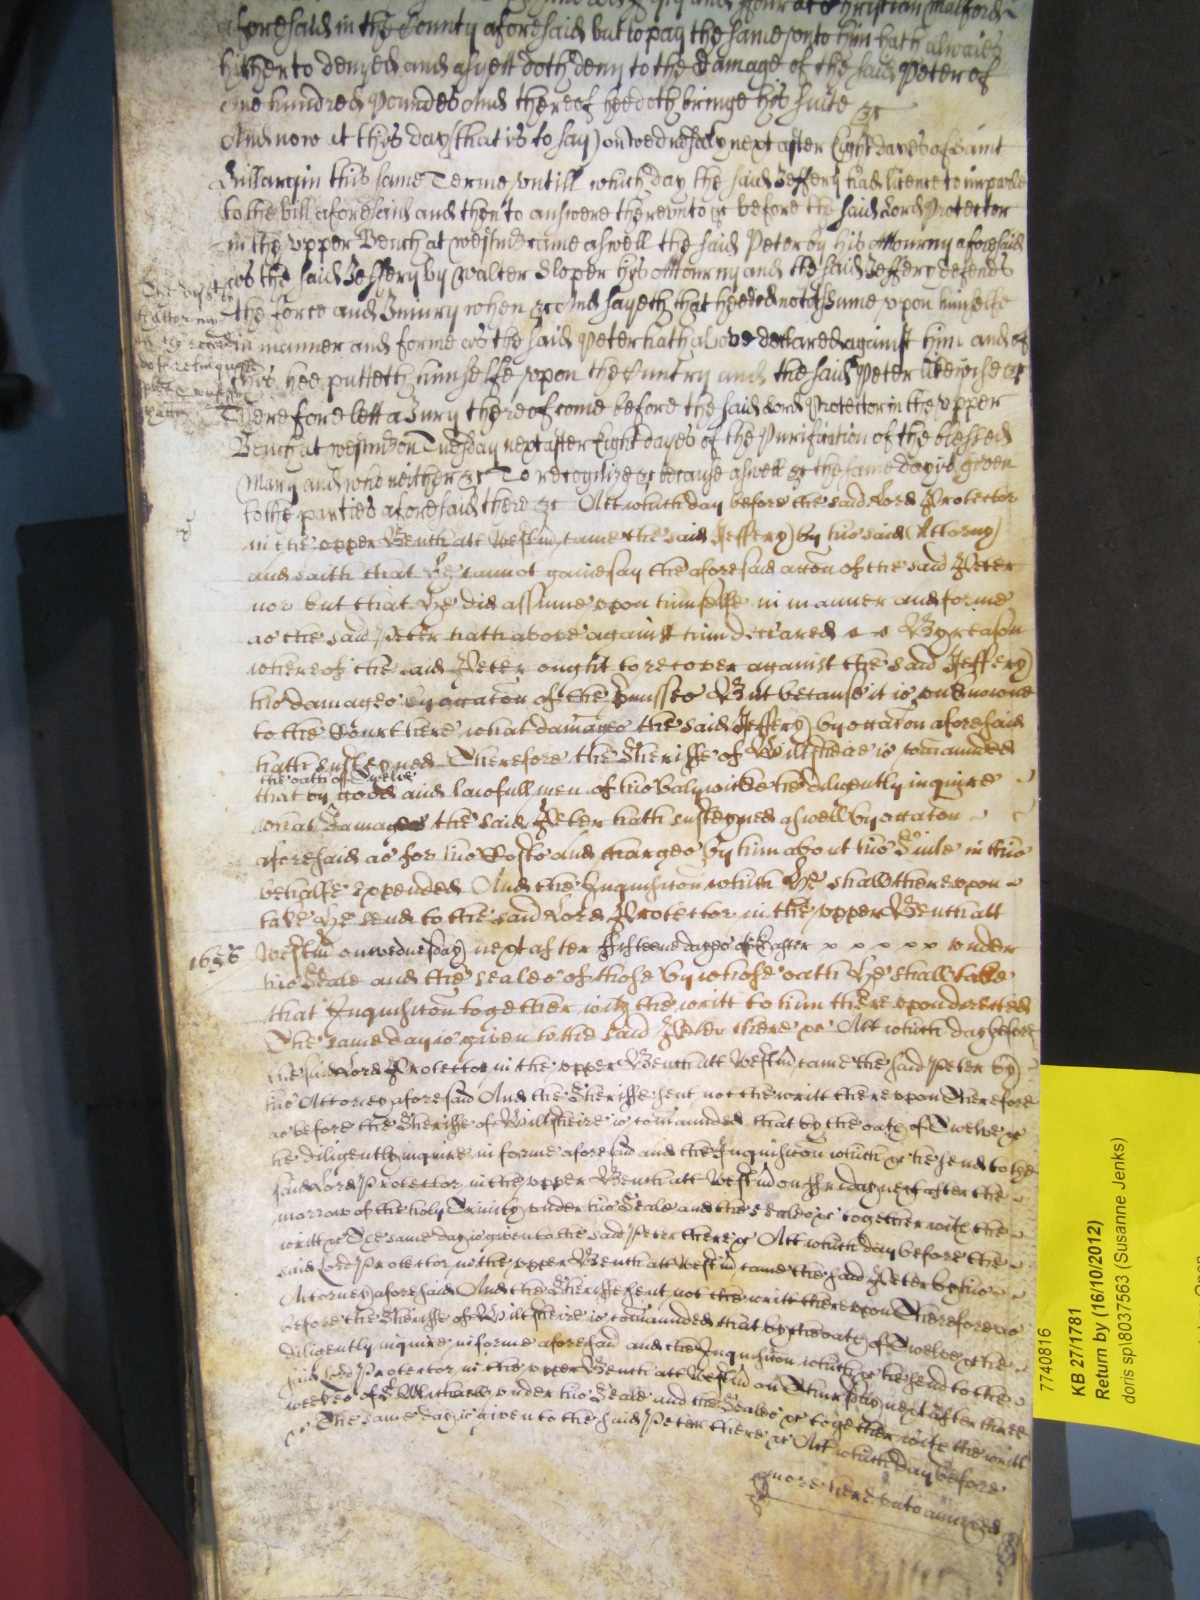 and ffour at Christian Malford
aforesaid in the County aforesaid but to pay the same vnto him hath alwaies
hitherto denyed and as yett doth deny to the damage of the said Peter of
One hundred Poundes And thereof hee doth bringe his suite &c
And now at this day (that is to say) on wednesday next after Eight dayes of Saint
Hillary in this same Terme vntill which day the said Jeffery had licence to imparle
to the bill aforesaid and then to answere therevnto &c before the said Lord Protector
in the vpper Bench at westm came aswell the said Peter by his Attorny aforesaid
as the said Jeffery by Walter Sloper his Attorny and the said Jeffery defends
the force and Iniury when &c And sayeth that hee did not assume vpon himselfe
in manner and forme as the said Peter hath above declared against him and of
this hee putteth himselfe vpon the Cuntry and the said Peter likewise &c
Therefore lett a Jury thereof come before the said Lord Protector in the vpper
Bench at westm on Tuesday next after Eight dayes of the Purification of the blessed
Mary and who neither &c To recognize &c because aswell &c the same day is given
to the parties aforesaid there &c Att which day before the said Lord Protector
in the vpper Bench att Westm came the said Jeffery by his said Attorny
and saith that he cannot gainesay the aforesaid accon of the said Peter
nor but that he did assume vpon himselfe in manner and forme
as the said Peter hath above against him declared By reason
whereof the said Peter ought to recover against the said Jeffery
his damages by occacon of the pmisses But because it is vnknowne
to the Court here what damages the said Jeffery by occacon aforesaid
hath susteyned Therefore the Sheriffe of Wiltsheire is comaunded
the oath of Twelve
that by good and lawfull men of his Balywicke he diligently inquire
what Damages the said Peter hath susteyned aswell by occacon
aforesaid as for his Costs and charges by him about his Suite in this
behalfe expended And the Inquisicon which he shall therevpon
take he send to the said Lord Protector in the vpper Bench att
1656 Westm on wednesday next after fifteene dayes of after x x x x x vnder
his Seale and the seales of those by whose oath he shall take
that Inquisicon together with the writt to him therevpon directed
The same day is given to the said Peter there &c Att which day before
the said Lord Protector in the vpper Bench att Westm came the said Peter by
his Attorney aforesaid And the Sheriffe sent not the writt therevpon Therefore
as before the Sheriffe of Wiltsheire is comaunded that by the oath of Twelve &c
he diligently inquire in forme aforesaid and the Inquisicon which &c he send to the
said Lord Protector in the vpper Bench att Westm on ffriday next after the
morrow of the holy Trinity vnder his Seale and the seales &c together with the
writt &c The same day is given to the said Peter there &c Att which day before the
said Lord Protector in the vpper Bench att Westm came the said Peter by his
Attorney aforesaid And the Sheriffe sent not the writt therevpon Therefore as
before the Sheriffe of Wiltsheire is comaunded that by the oath of Twelve &c he
diligently inquire in forme aforesaid and the Inquisicon which &c he send to the
said Lord Protector in the vpper Bench att Westm on Thursday next after three
weekes of St Michaell vnder his Seale and the Seales &c together with the writt
&c The same day is given to the said Peter there &c Att which day before
more here vnto annexed
7740816
KB 27/1781
Return by (16/10/2012)
doris sp\8037563 (Susanne Jenks)